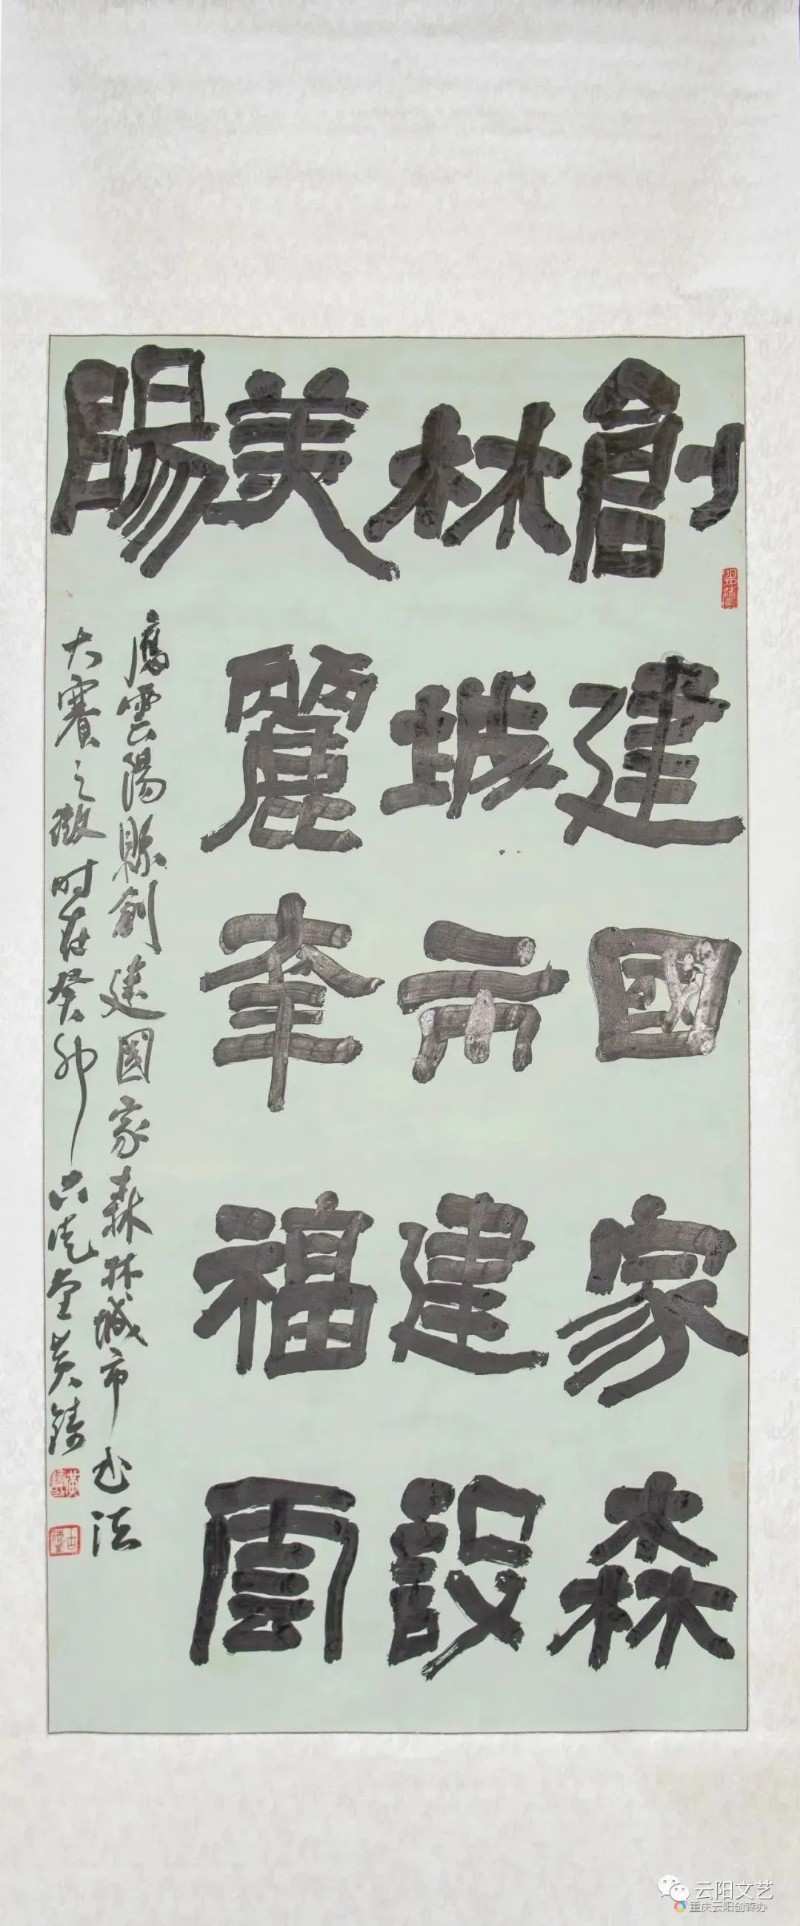 創建國家森
林城市建設
美麗幸福雲
陽
應雲陽縣創建國家森林城市书法
大賽之徵时在癸卯六虎堂黄鑄
云阳文艺
重庆云阳创森办